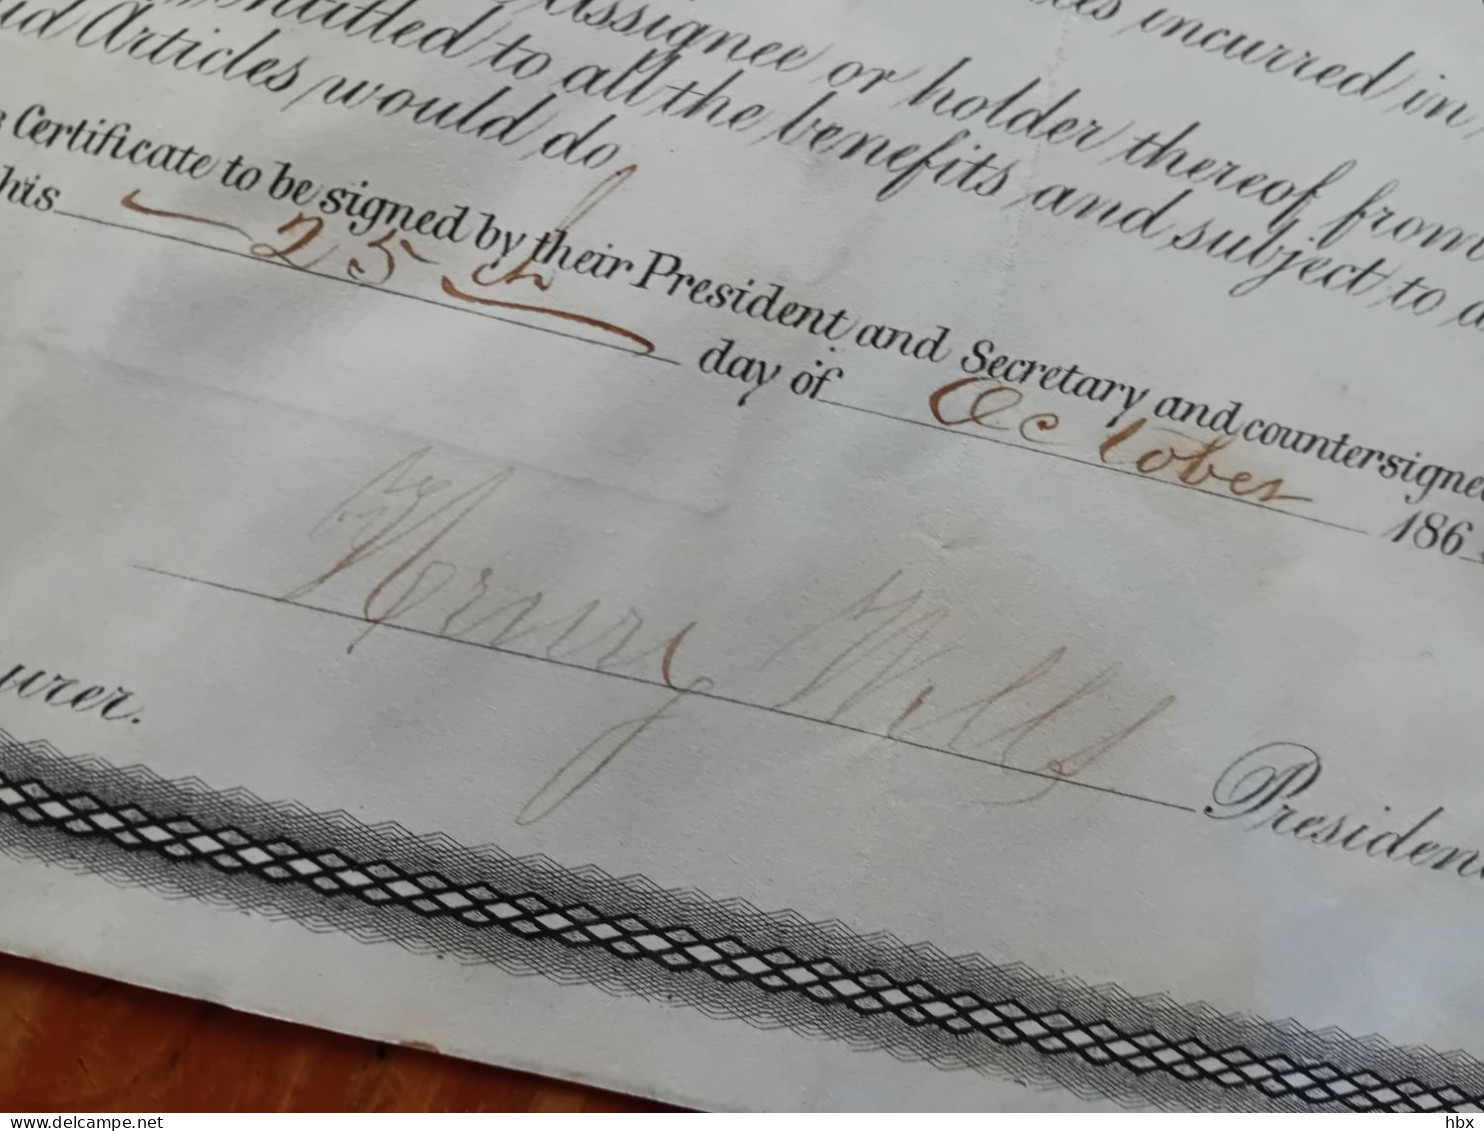 incurred in
Assignee or holder thereof from
entitled to all the benefits and subject to
Articles would do.
Certificate to be signed by their President and Secretary and countersigned
this 25th day of October 186
Henry Wells President
urer.
www.delcampe.net
hbx